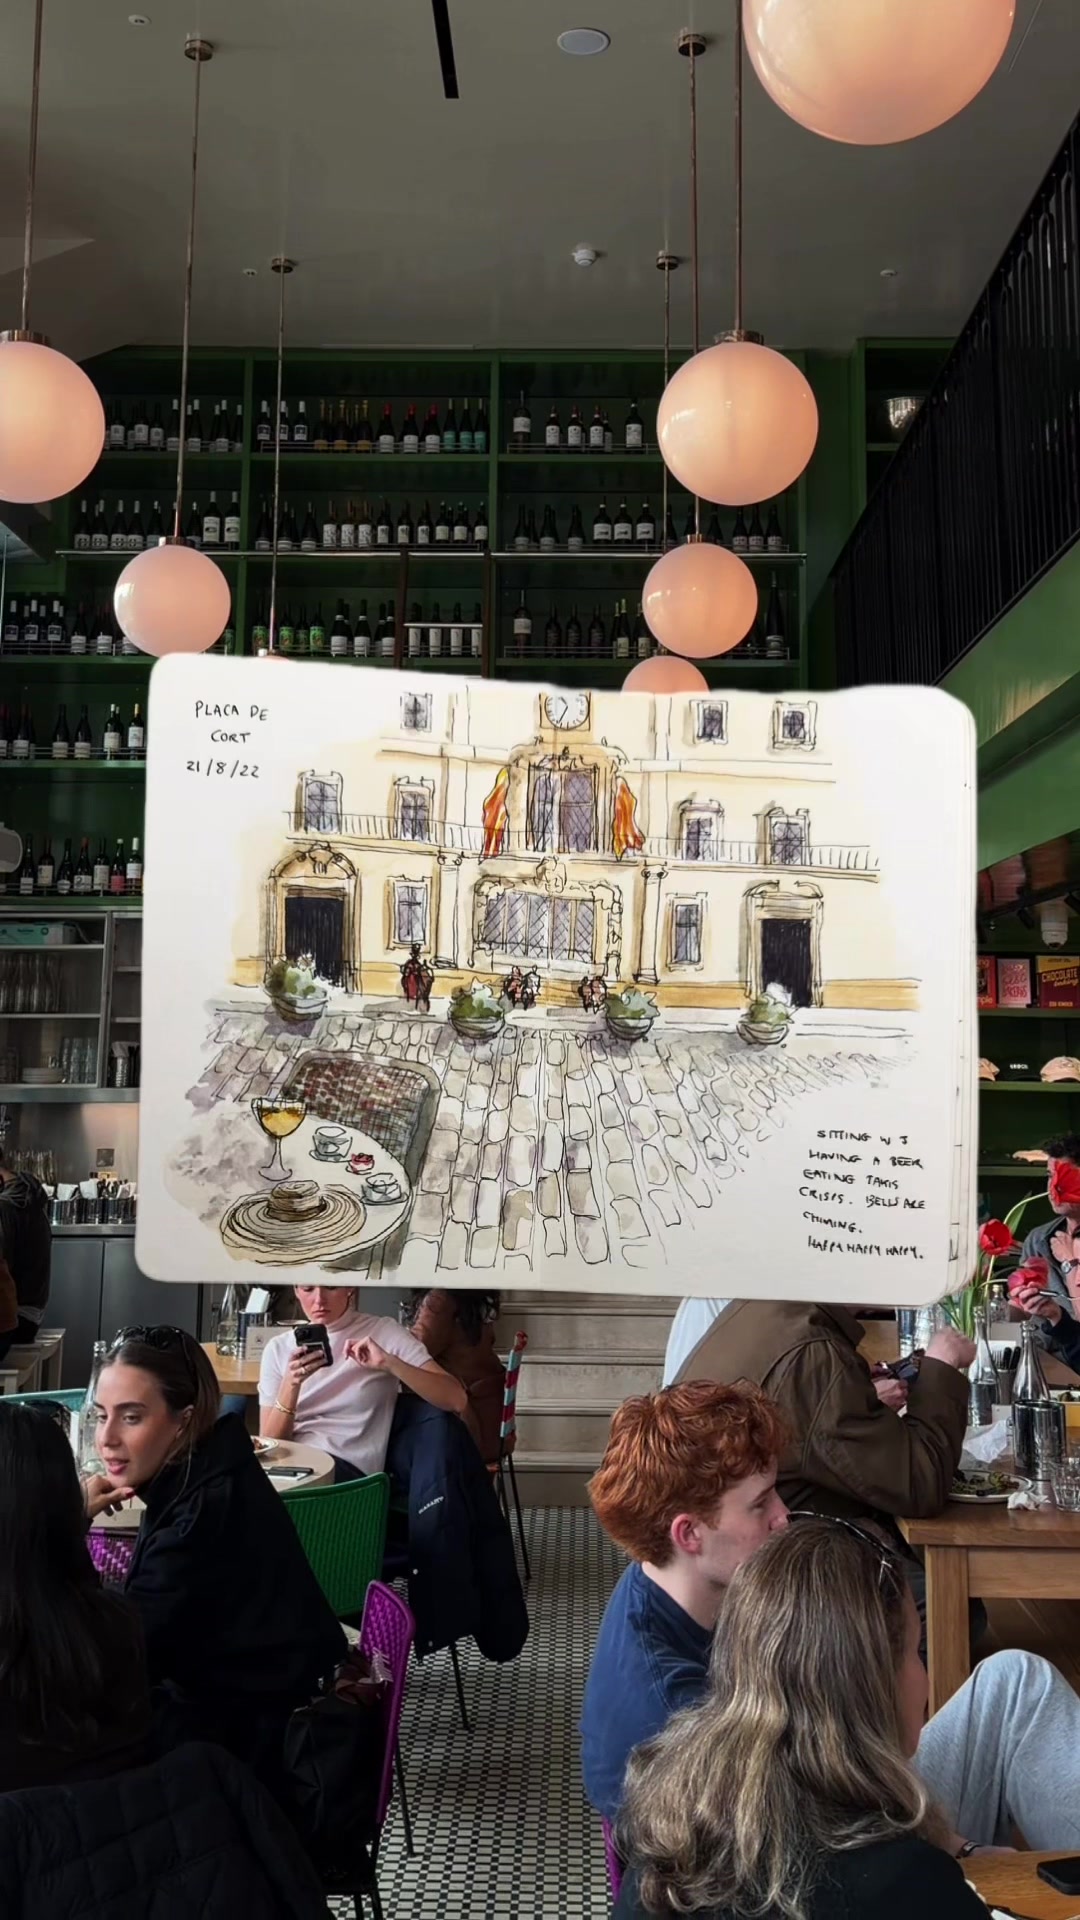 PLACA DE
CORT
21/8/22
SITTING W J
HAVING A BEER
EATING TAKIS
CRISPS. BELLS ARE
CHIMING.
HAPPY HAPPY HAPPY.
CHOCOLATE